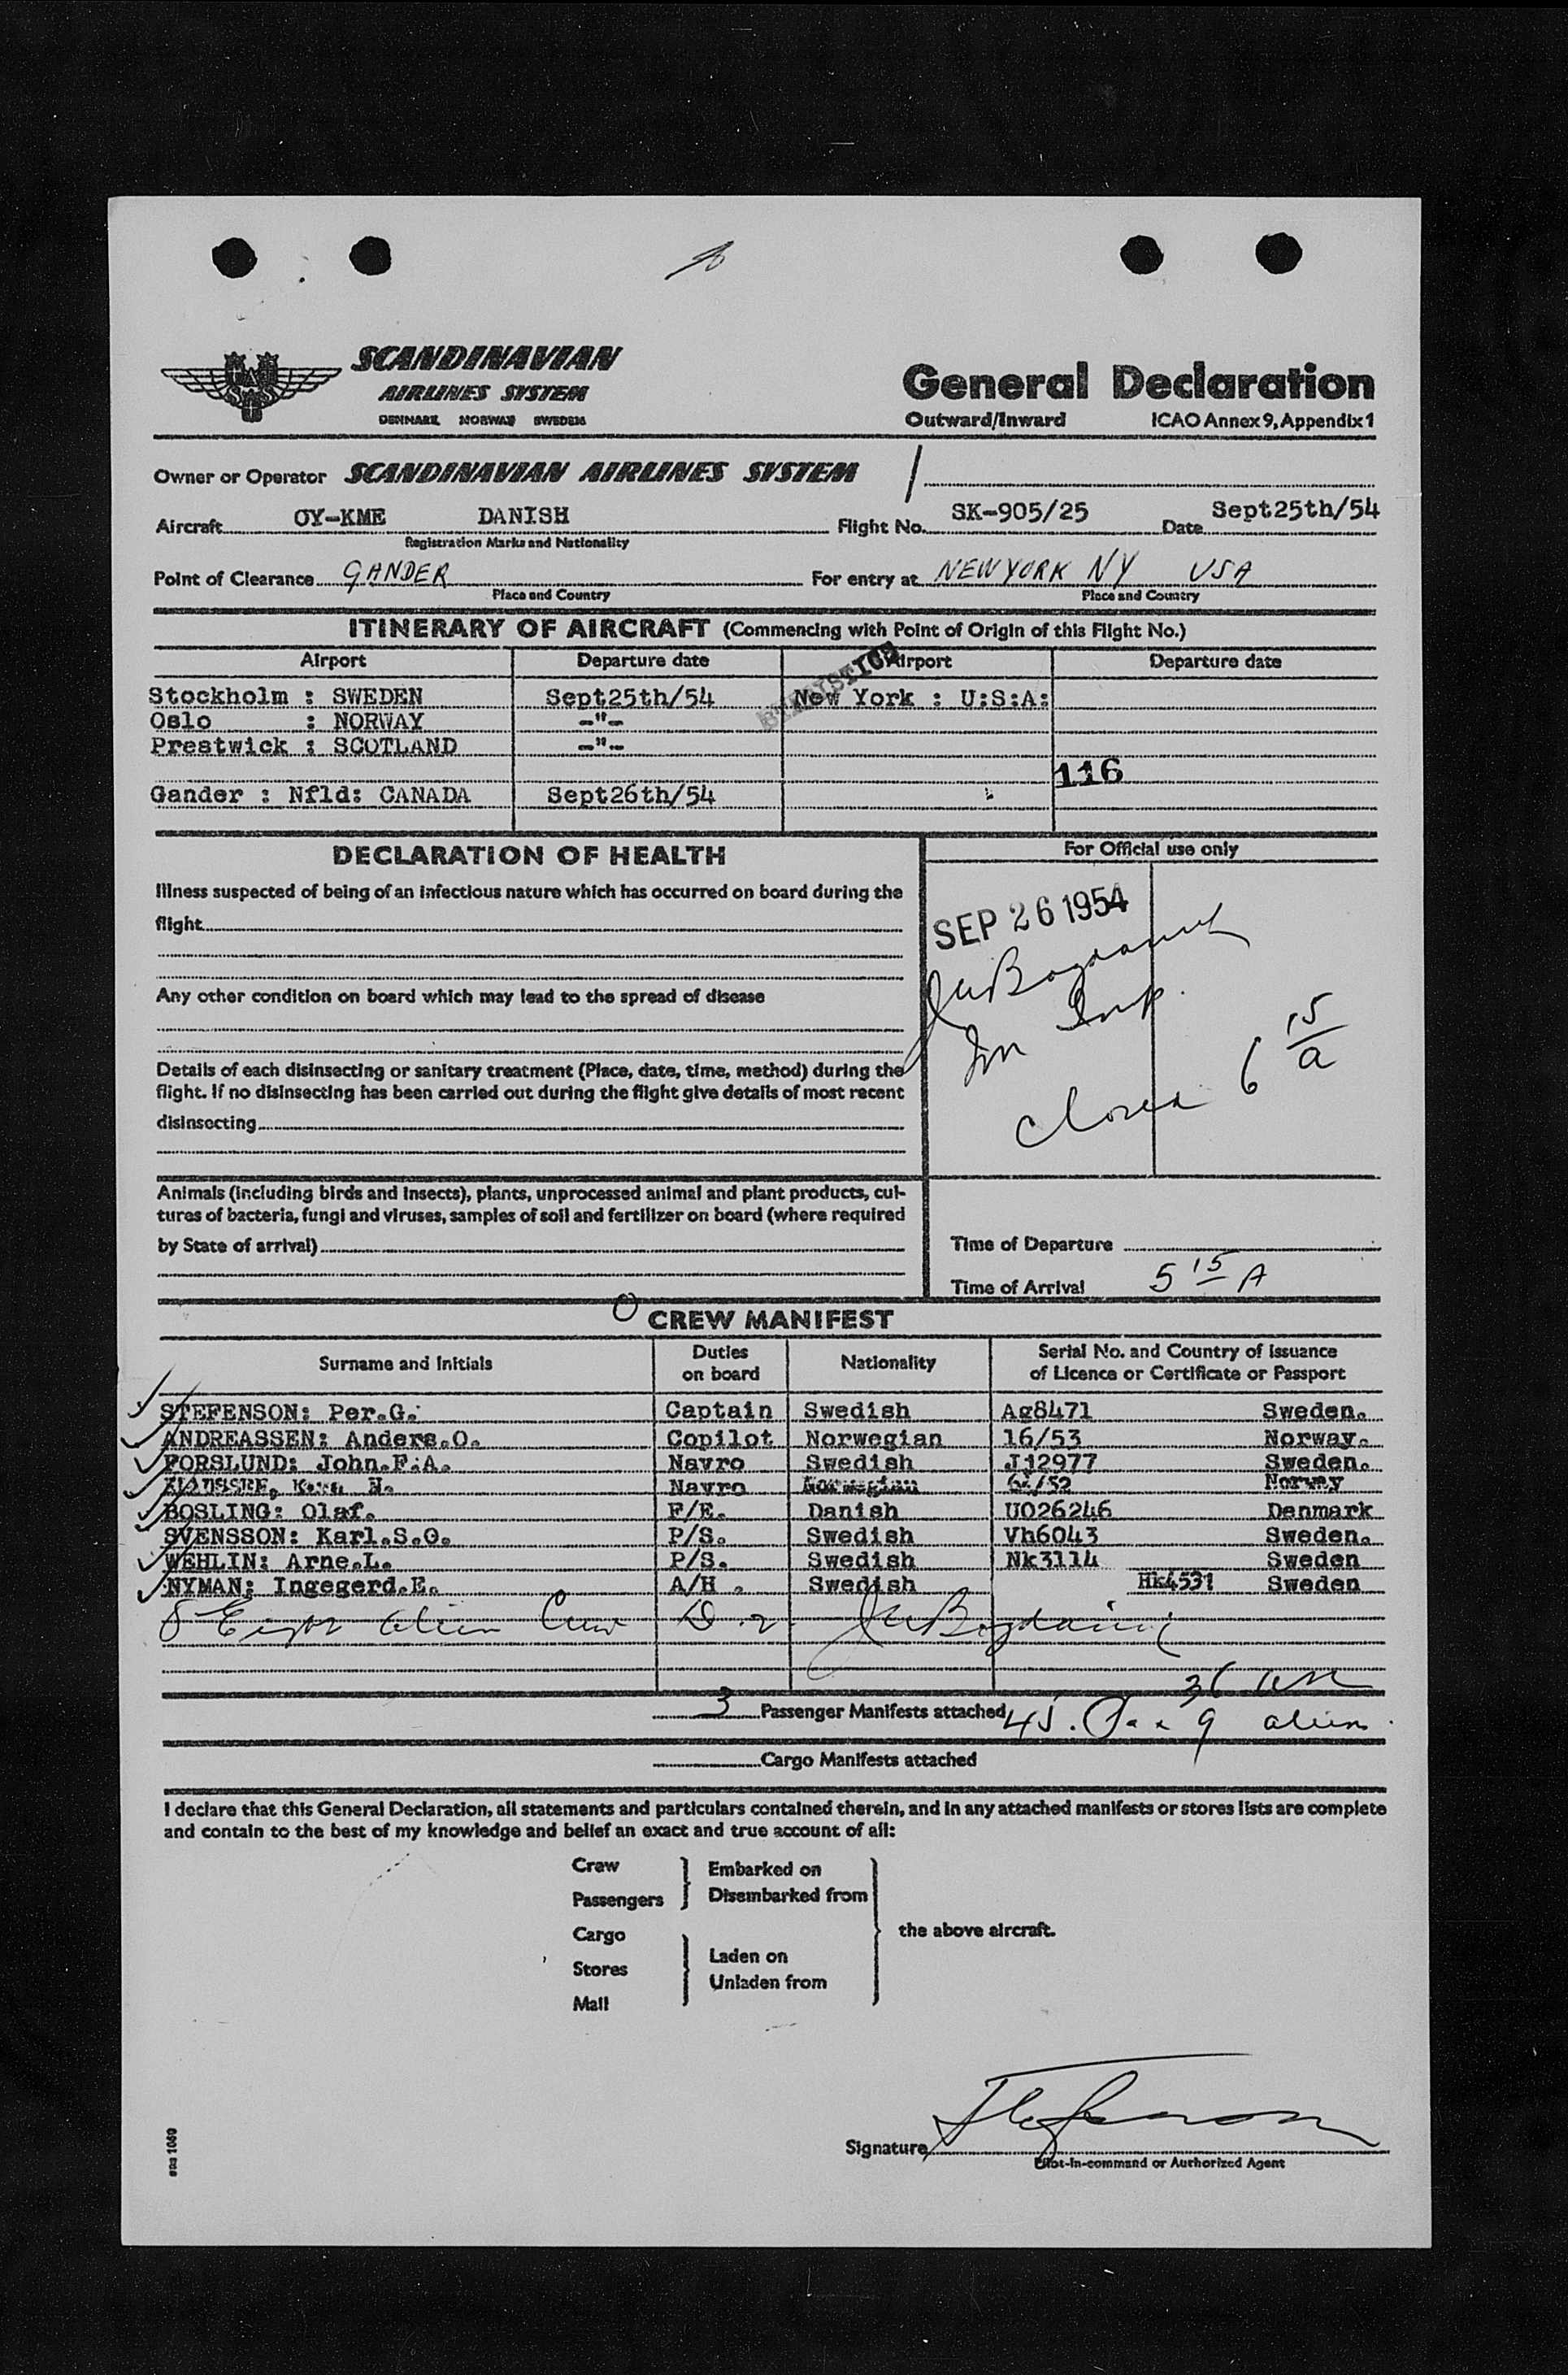 SCANDINAVIAN
AIRLINES SYSTEM
DENMARK NORWAY SWEDEN
General Declaration
Outward/Inward ICAO Annex 9, Appendix 1
Owner or Operator SCANDINAVIAN AIRLINES SYSTEM
Aircraft OY-KME DANISH Flight No. SK-905/25 Date Sept25th/54
Registration Marks and Nationality
Point of Clearance GANDER For entry at NEW YORK NY USA
Place and Country Place and Country
ITINERARY OF AIRCRAFT (Commencing with Point of Origin of this Flight No.)
Airport Departure date Airport Departure date
Stockholm : SWEDEN Sept25th/54 New York : U:S:A:
Oslo : NORWAY -"-
Prestwick : SCOTLAND -"-
116
Gander : Nfld: CANADA Sept26th/54
DECLARATION OF HEALTH
Illness suspected of being of an infectious nature which has occurred on board during the
flight
Any other condition on board which may lead to the spread of disease
Details of each disinsecting or sanitary treatment (Place, date, time, method) during the
flight. If no disinsecting has been carried out during the flight give details of most recent
disinsecting
Animals (including birds and insects), plants, unprocessed animal and plant products, cul-
tures of bacteria, fungi and viruses, samples of soil and fertilizer on board (where required
by State of arrival)
For Official use only
SEP 26 1954
Im Insp.
Closed 6 15/a
Time of Departure
Time of Arrival 5 15 A
CREW MANIFEST
Surname and Initials Duties on board Nationality Serial No. and Country of Issuance of Licence or Certificate or Passport
STEFENSON: Per.G. Captain Swedish Ag8471 Sweden.
ANDREASSEN: Anders.O. Copilot Norwegian 16/53 Norway.
FORSLUND: John.F.A. Navro Swedish J12977 Sweden.
H. Navro Norwegian Norway
BOSLING: Olaf. F/E. Danish U026246 Denmark
SVENSSON: Karl.S.O. P/S. Swedish Vh6043 Sweden.
WEHLIN: Arne.L. P/S. Swedish Nk3114 Sweden
NYMAN: Ingegerd.E. A/H . Swedish Hk4531 Sweden
8 Eight alien Crew
3 Passenger Manifests attached 45. 9 alien
Cargo Manifests attached
I declare that this General Declaration, all statements and particulars contained therein, and in any attached manifests or stores lists are complete
and contain to the best of my knowledge and belief an exact and true account of all:
Crew Embarked on
Passengers Disembarked from
Cargo the above aircraft.
Stores Laden on
Unladen from
Mail
Signature
Pilot-in-command or Authorized Agent